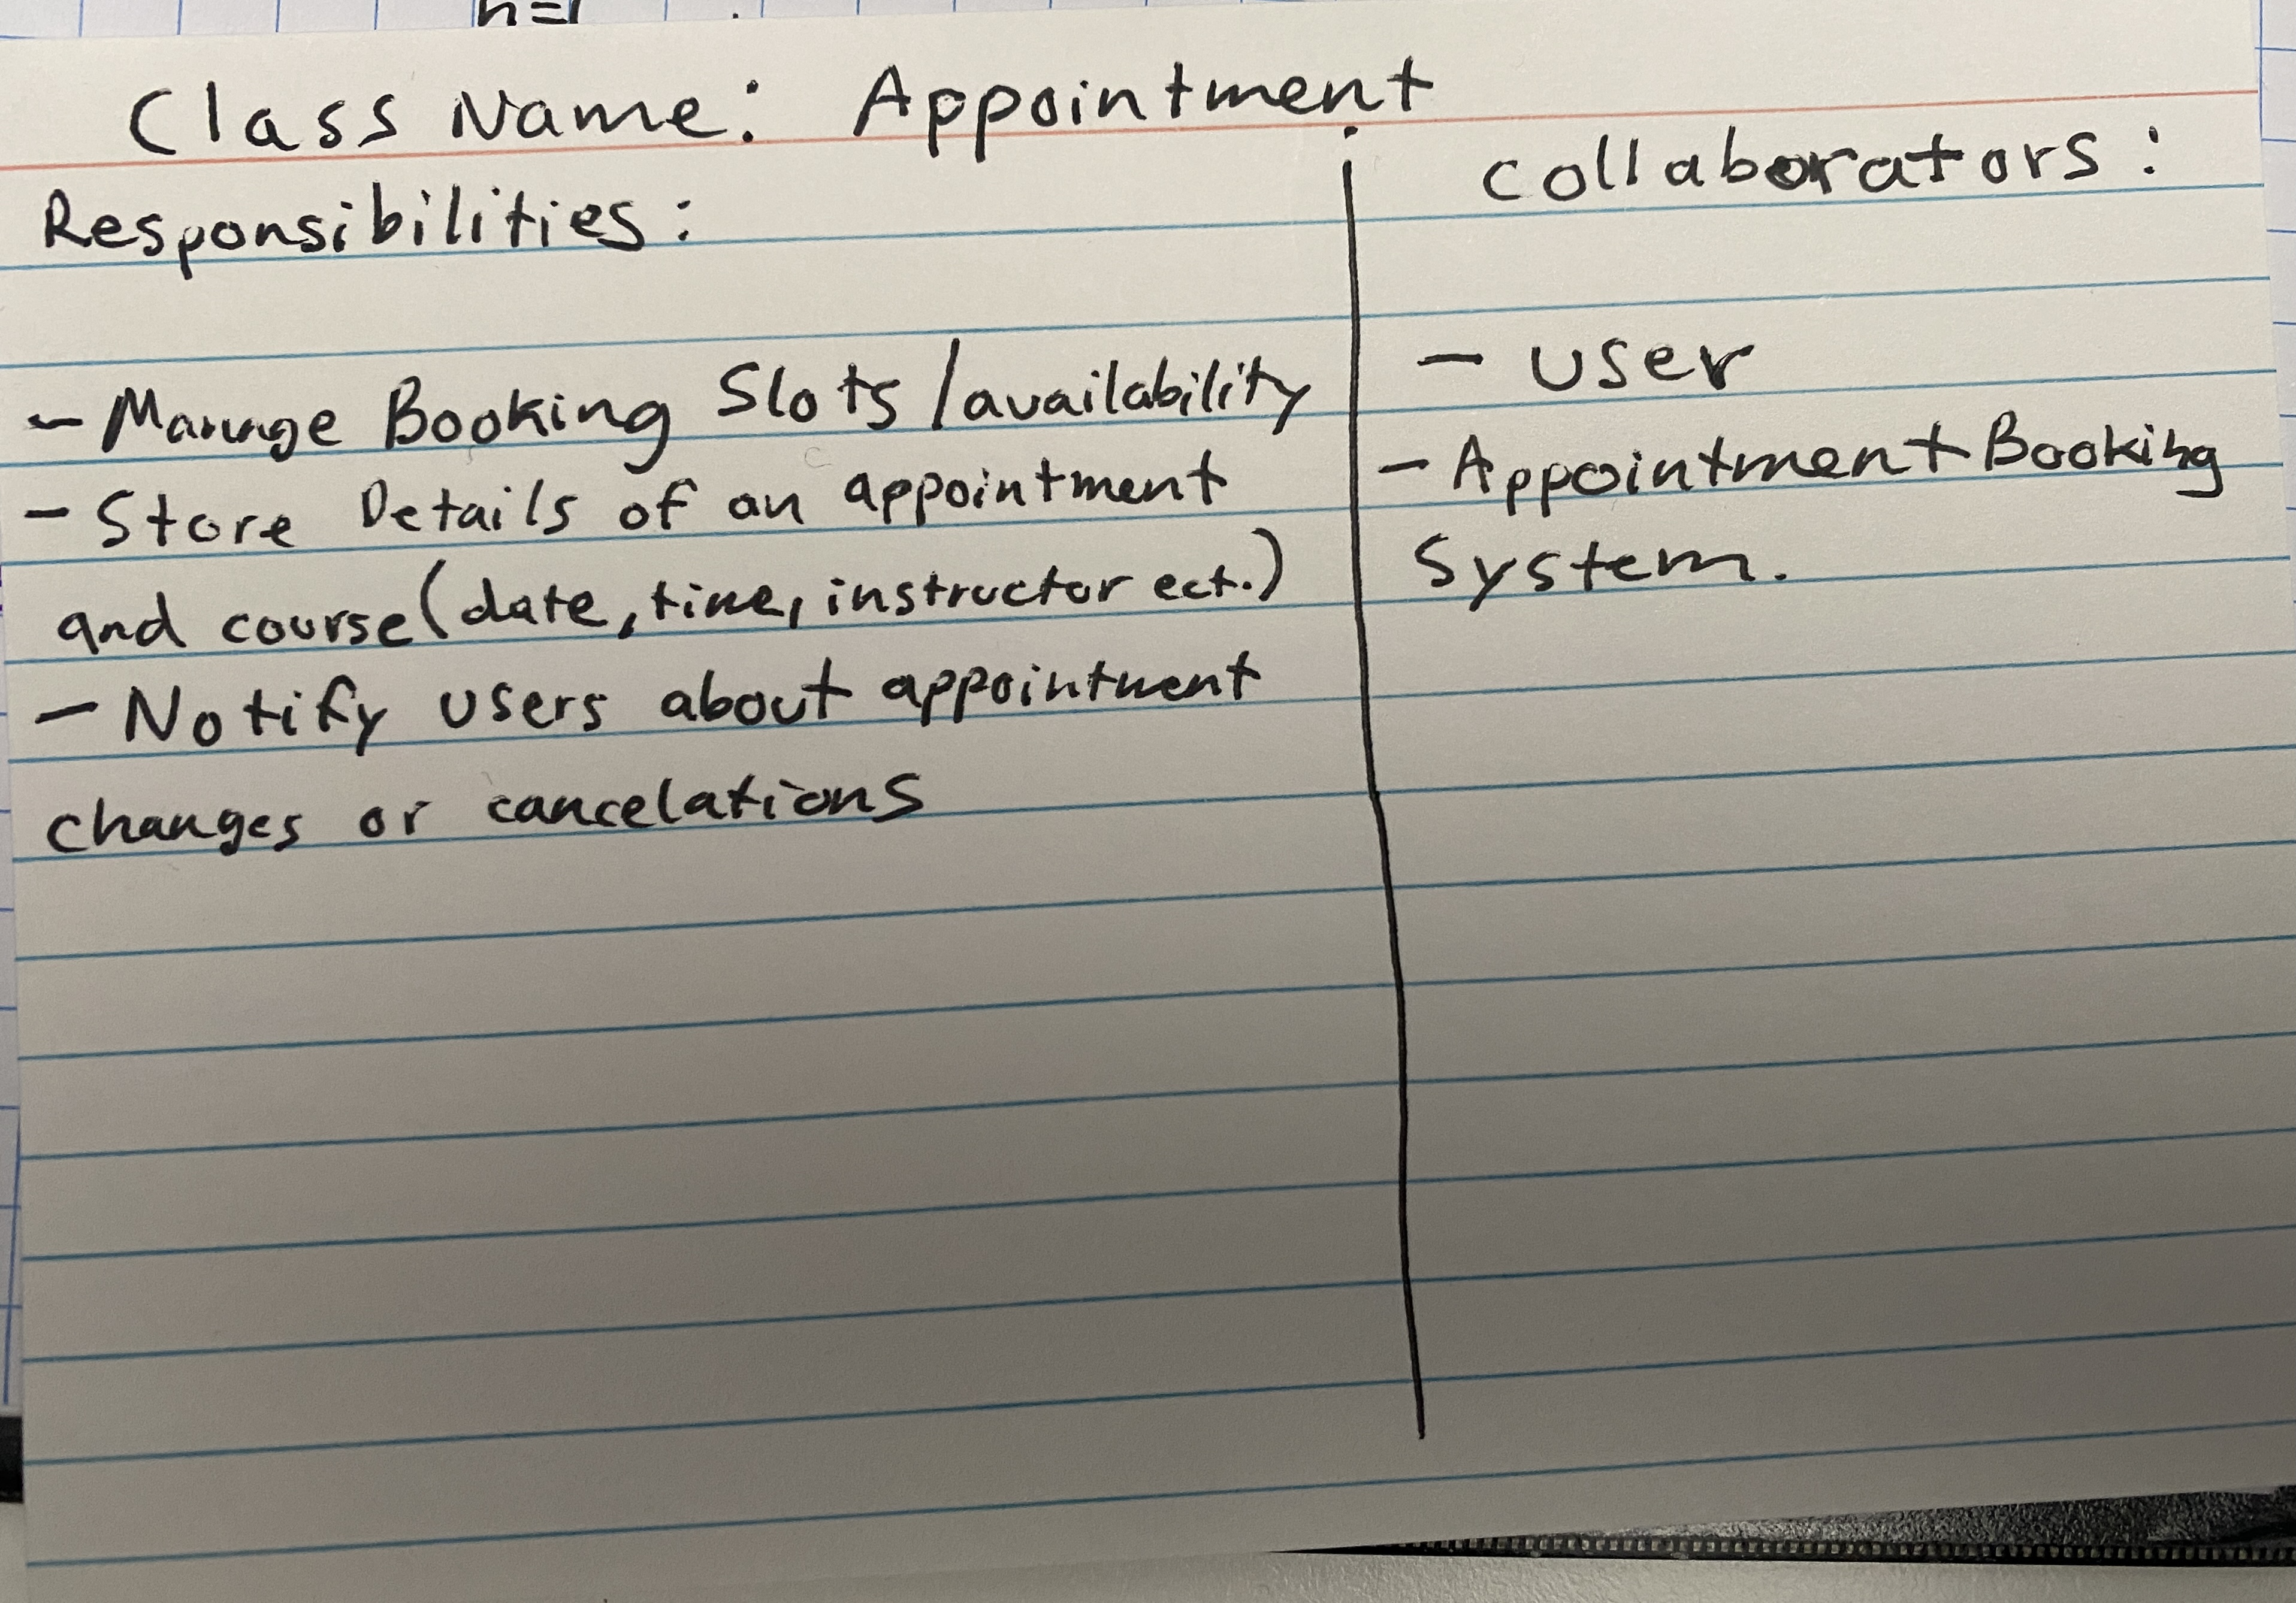 n=1
Class Name: Appointment
Responsibilities:
- Manage Booking Slots/availability
- Store Details of an appointment
and course (date, time, instructor ect.)
- Notify users about appointment
changes or cancelations
Collaborators:
- User
- Appointment Booking
System.